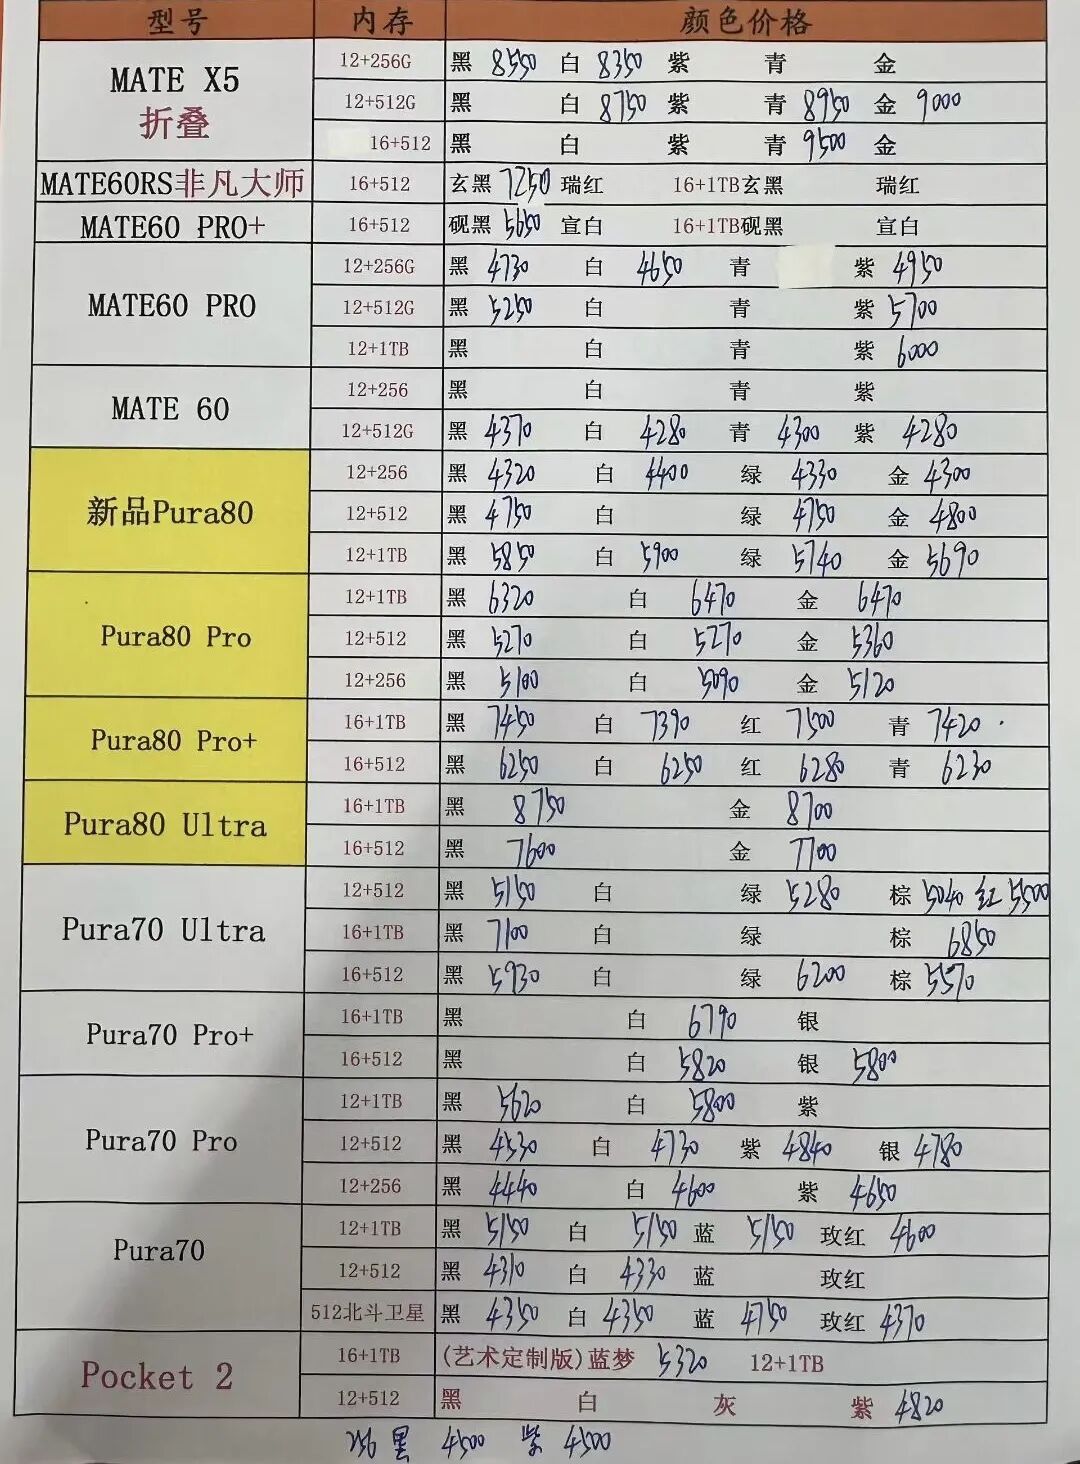 型号 内存 颜色价格
MATE X5 折叠 12+256G 黑 8550 白 8350 紫 青 金
12+512G 黑 白 8750 紫 青 8950 金 9000
16+512 黑 白 紫 青 9500 金
MATE60RS非凡大师 16+512 玄黑 7250 瑞红 16+1TB玄黑 瑞红
MATE60 PRO+ 16+512 砚黑 5650 宣白 16+1TB砚黑 宣白
MATE60 PRO 12+256G 黑 4730 白 4650 青 紫 4950
12+512G 黑 5250 白 青 紫 5700
12+1TB 黑 白 青 紫 6000
MATE 60 12+256 黑 白 青 紫
12+512G 黑 4370 白 4280 青 4300 紫 4280
新品Pura80 12+256 黑 4320 白 4400 绿 4330 金 4300
12+512 黑 4750 白 绿 4750 金 4800
12+1TB 黑 5850 白 5900 绿 5740 金 5690
Pura80 Pro 12+1TB 黑 6320 白 6470 金 6470
12+512 黑 5270 白 5270 金 5360
12+256 黑 5100 白 5090 金 5120
Pura80 Pro+ 16+1TB 黑 7450 白 7390 红 7500 青 7420
16+512 黑 6250 白 6250 红 6280 青 6230
Pura80 Ultra 16+1TB 黑 8750 金 8700
16+512 黑 7600 金 7700
Pura70 Ultra 12+512 黑 5150 白 绿 5280 棕 5040 红 5500
16+1TB 黑 7100 白 绿 棕 6850
16+512 黑 5930 白 绿 6200 棕 5570
Pura70 Pro+ 16+1TB 黑 白 6790 银
16+512 黑 白 5820 银 5800
Pura70 Pro 12+1TB 黑 5620 白 5800 紫
12+512 黑 4530 白 4730 紫 4840 银 4780
12+256 黑 4440 白 4600 紫 4650
Pura70 12+1TB 黑 5150 白 5150 蓝 5150 玫红 4600
12+512 黑 4310 白 4330 蓝 玫红
512北斗卫星 黑 4350 白 4350 蓝 4750 玫红 4370
Pocket 2 16+1TB (艺术定制版)蓝梦 5320 12+1TB
12+512 黑 白 灰 紫 4820
256 黑 4500 紫 4500